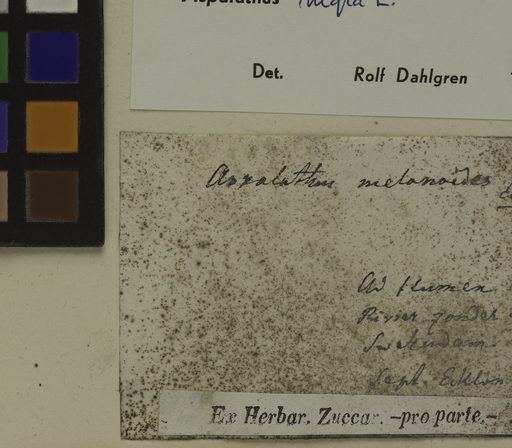 Aspalathus nigra L.
Det. Rolf Dahlgren
Aspalathus melanoides
Ad flumen
Rivier zonder
Swellendam.
Sept. Ecklon
Ex Herbar. Zuccar. -pro parte.-